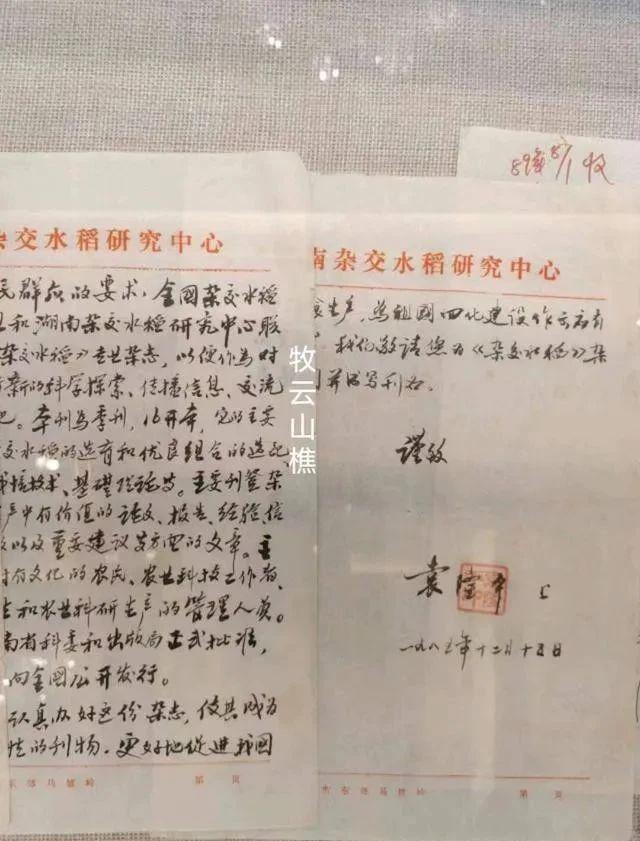 杂交水稻研究中心
民群众的要求，全国杂交水稻
和湖南杂交水稻研究中心联
杂交水稻》专业杂志，以便作为对
新的科学探索、传播信息、交流
本刊为季刊，16开本，它的主要
交水稻的选育和优良组合的选配
栽培技术、基础理论等。主要刊登杂
产中有价值的论文、报告、经验、信
以及重要建议等方面的文章。主
对有文化的农民、农业科技工作者、
生和农业科研生产的管理人员。
南省科委和出版局正式批准，
向全国公开发行。
认真办好这份杂志，使其成为
性的刊物，更好地促进我国
东郊马坡岭
第 页
89
收
南杂交水稻研究中心
食生产，为祖国四化建设作出应有
我们敬请您为《杂交水稻》杂
并书写刊名。
谨致
袁隆平 上
一九八五年十二月十五日
市东郊马坡岭
第 页
牧云山樵